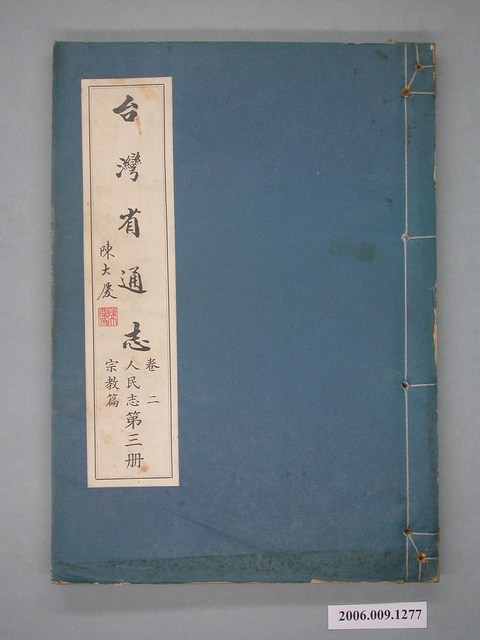 台灣省通志
陳大慶
卷二
人民志
宗教篇
第三册
2006.009.1277